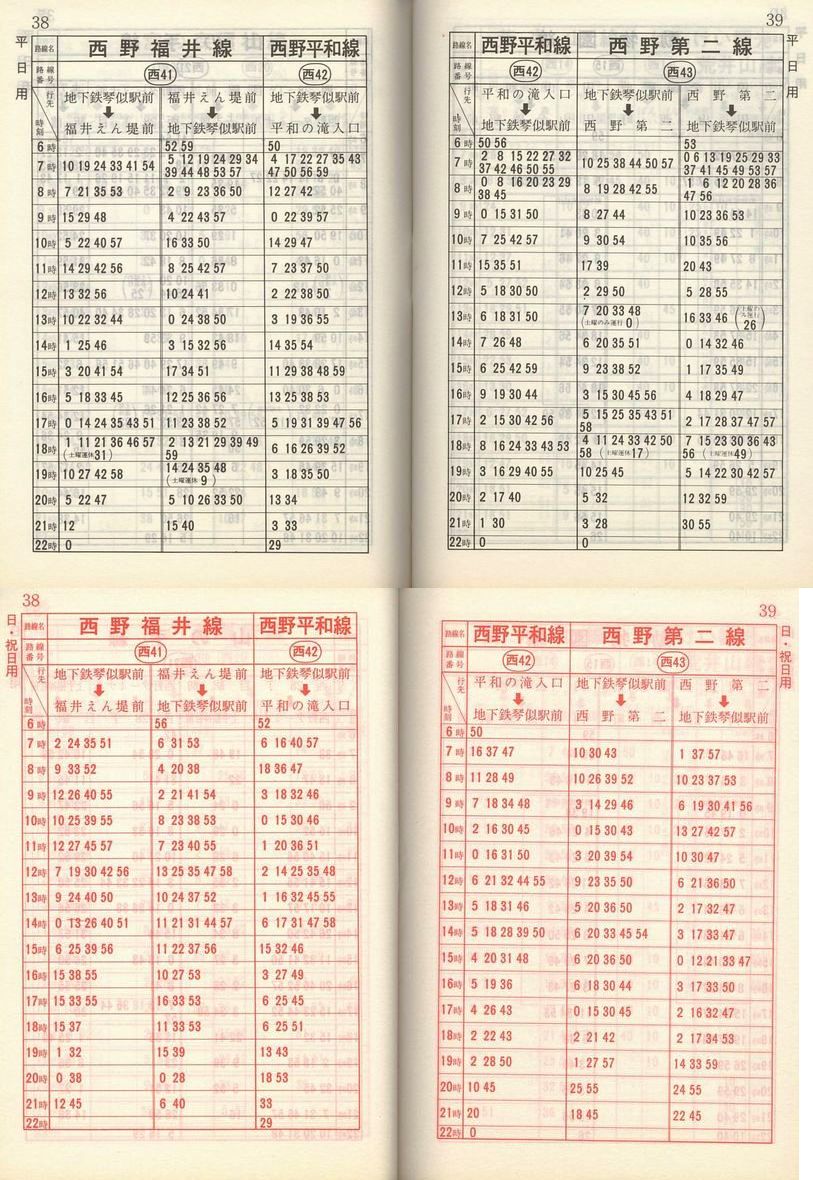 38
平日用
路線名 西野福井線 西野平和線
路線番号 西41 西42
行先 時刻 地下鉄琴似駅前 福井えん堤前 地下鉄琴似駅前
福井えん堤前 地下鉄琴似駅前 平和の滝入口
6時 52 59 50
7時 10 19 24 33 41 54 5 12 19 24 29 34 4 17 22 27 35 43
39 44 48 53 57 47 50 56 59
8時 7 21 35 53 2 9 23 36 50 12 27 42
9時 15 29 48 4 22 43 57 0 22 39 57
10時 5 22 40 57 16 33 50 14 29 47
11時 14 29 42 56 8 25 42 57 7 23 37 50
12時 13 32 56 10 24 41 2 22 38 50
13時 10 22 32 44 0 24 38 50 3 19 36 55
14時 1 25 46 3 15 32 56 14 35 54
15時 3 20 41 54 17 34 51 11 29 38 48 59
16時 5 18 33 45 12 25 36 56 13 25 38 53
17時 0 14 24 35 43 51 11 23 38 52 5 19 31 39 47 56
18時 1 11 21 36 46 57 2 13 21 29 39 49 6 16 26 39 52
(土曜運休31) 59
19時 10 27 42 58 14 24 35 48 3 18 35 50
(土曜運休 9)
20時 5 22 47 5 10 26 33 50 13 34
21時 12 15 40 3 33
22時 0 29
39
平日用
路線名 西野平和線 西野第二線
路線番号 西42 西43
行先 時刻 平和の滝入口 地下鉄琴似駅前 西野第二
地下鉄琴似駅前 西野第二 地下鉄琴似駅前
6時 50 56 53
7時 2 8 15 22 27 32 10 25 38 44 50 57 0 6 13 19 25 29 33
37 42 46 50 55 37 41 45 49 53 57
8時 0 8 16 20 23 29 8 19 28 42 55 1 6 12 20 28 36
38 45 47 56
9時 0 15 31 50 8 27 44 10 23 36 53
10時 7 25 42 57 9 30 54 10 35 56
11時 15 35 51 17 39 20 43
12時 5 18 30 50 2 29 50 5 28 55
13時 6 18 31 50 7 20 33 48 16 33 46 (土曜のみ運行 26)
(土曜のみ運行 0)
14時 7 26 48 6 20 35 51 0 14 32 46
15時 6 25 42 59 9 23 38 52 1 17 35 49
16時 9 19 30 44 3 15 30 45 56 4 18 29 47
17時 2 15 30 42 56 5 15 25 35 43 51 2 17 28 37 47 57
58
18時 8 16 24 33 43 53 4 11 24 33 42 50 7 15 23 30 36 43
58 (土曜運休17) 56 (土曜運休49)
19時 3 16 29 40 55 10 25 45 5 14 22 30 42 57
20時 2 17 40 5 32 12 32 59
21時 1 30 3 28 30 55
22時 0 0
38
日・祝日用
路線名 西野福井線 西野平和線
路線番号 西41 西42
行先 時刻 地下鉄琴似駅前 福井えん堤前 地下鉄琴似駅前
福井えん堤前 地下鉄琴似駅前 平和の滝入口
6時 56 52
7時 2 24 35 51 6 31 53 6 16 40 57
8時 9 33 52 4 20 38 18 36 47
9時 12 26 40 55 2 21 41 54 3 18 32 46
10時 10 25 39 55 8 23 38 53 0 15 30 46
11時 12 27 45 57 7 23 40 55 1 20 36 51
12時 7 19 30 42 56 13 25 35 47 58 2 14 25 35 48
13時 9 24 40 50 10 24 37 52 1 16 32 45 55
14時 0 13 26 40 51 11 21 31 44 57 6 17 31 47 58
15時 6 25 39 56 11 22 37 56 15 32 46
16時 15 38 55 10 27 53 3 27 49
17時 15 33 55 16 33 53 6 25 45
18時 15 37 11 33 53 6 25 51
19時 1 32 15 39 13 43
20時 0 38 0 28 18 53
21時 12 45 6 40 33
22時 29
39
日・祝日用
路線名 西野平和線 西野第二線
路線番号 西42 西43
行先 時刻 平和の滝入口 地下鉄琴似駅前 西野第二
地下鉄琴似駅前 西野第二 地下鉄琴似駅前
6時 50
7時 16 37 47 10 30 43 1 37 57
8時 11 28 49 10 26 39 52 10 23 37 53
9時 7 18 34 48 3 14 29 46 6 19 30 41 56
10時 2 16 30 45 0 15 30 43 13 27 42 57
11時 0 16 31 50 3 20 39 54 10 30 47
12時 6 21 32 44 55 9 23 35 50 6 21 36 50
13時 5 18 31 46 5 20 36 50 2 17 32 47
14時 5 18 28 39 50 6 20 33 45 54 3 17 33 47
15時 4 20 31 48 6 20 36 50 0 12 21 33 47
16時 5 19 36 6 18 30 44 3 17 33 50
17時 4 26 43 0 15 30 45 2 16 32 47
18時 2 22 43 2 21 42 2 17 34 53
19時 2 28 50 1 27 57 14 33 59
20時 10 45 25 55 24 55
21時 20 18 45 22 45
22時 0